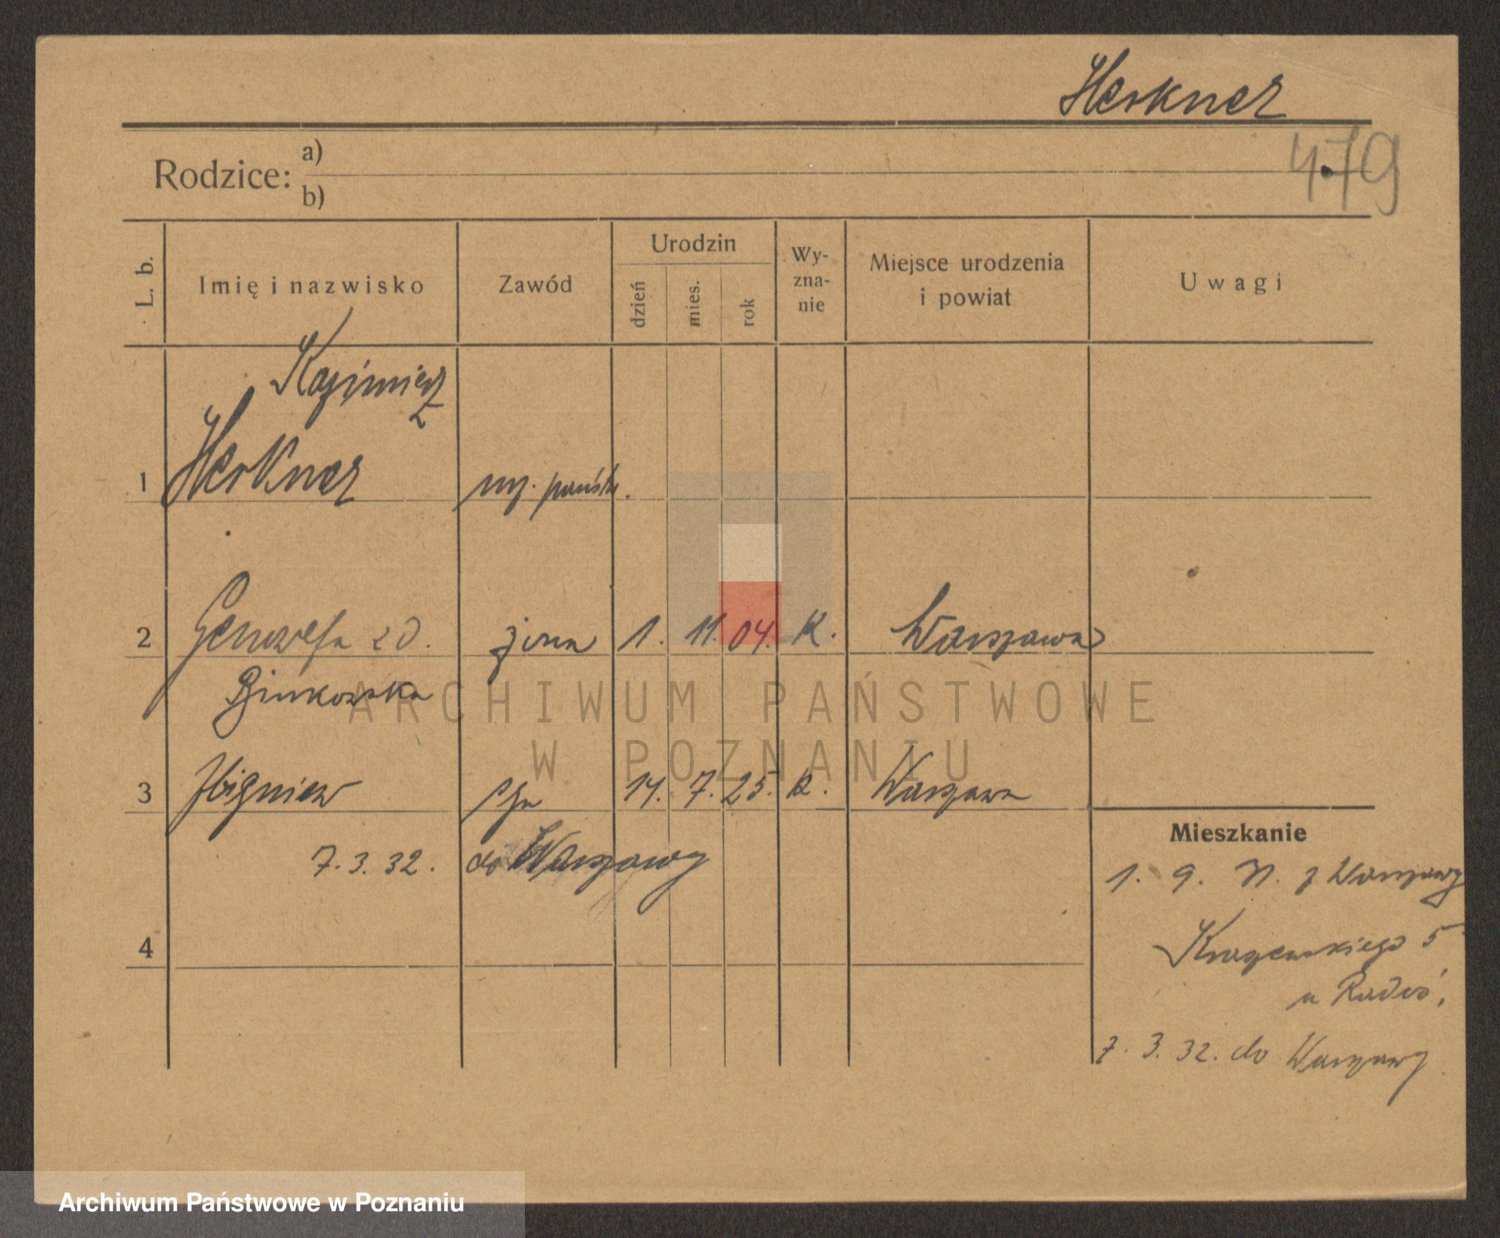 Herkner
479
Rodzice: a)
b)
L. b. Imię i nazwisko Zawód Urodzin dzień mies. rok Wy-zna-nie Miejsce urodzenia i powiat Uwagi
Kazimierz
1 Herkner urz. państw.
2 Genowefa zd. żona 1. 11. 04. K. Warszawa
Binkowska
3 Zbigniew syn 14. 7. 25. k. Warszawa
7. 3. 32. do Warszawy
4
Mieszkanie
1. 9. 31. z Warszawy
Kraszewskiego 5
u
7. 3. 32. do Warszawy
ARCHIWUM PAŃSTWOWE
W POZNANIU
Archiwum Państwowe w Poznaniu